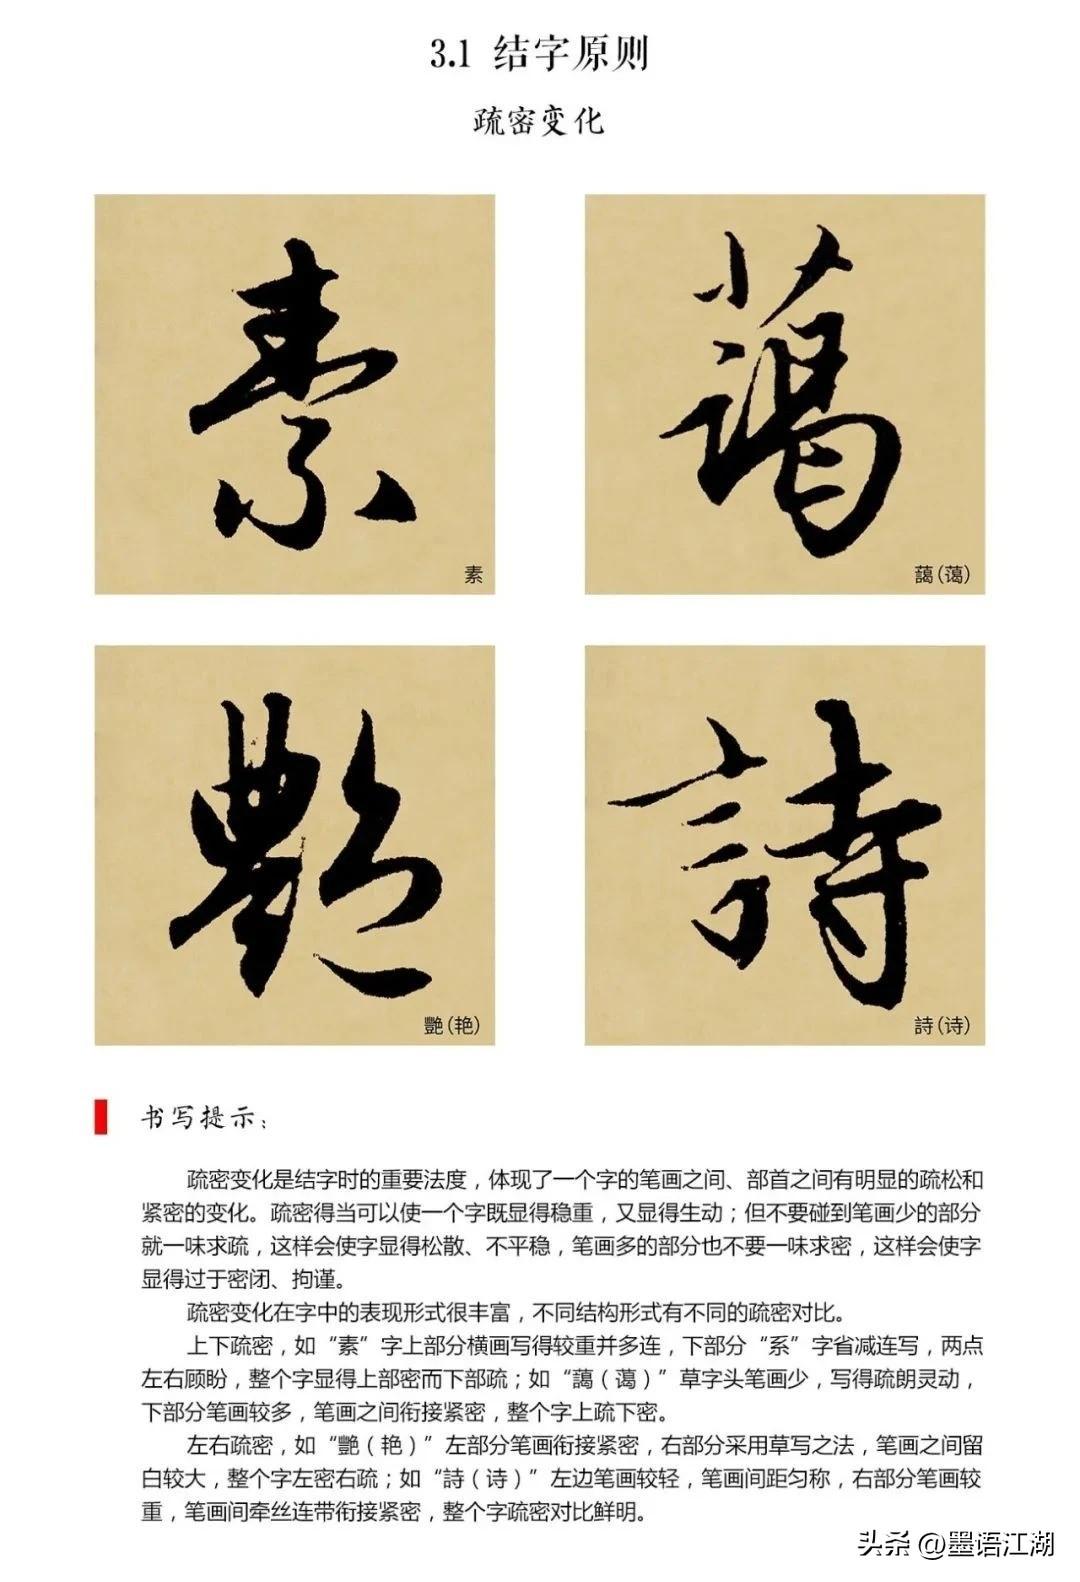 3.1 结字原则
疏密变化
素
藹(蔼)
艷(艳)
詩(诗)
书写提示：
疏密变化是结字时的重要法度，体现了一个字的笔画之间、部首之间有明显的疏松和
紧密的变化。疏密得当可以使一个字既显得稳重，又显得生动；但不要碰到笔画少的部分
就一味求疏，这样会使字显得松散、不平稳，笔画多的部分也不要一味求密，这样会使字
显得过于密闭、拘谨。
疏密变化在字中的表现形式很丰富，不同结构形式有不同的疏密对比。
上下疏密，如“素”字上部分横画写得较重并多连，下部分“系”字省减连写，两点
左右顾盼，整个字显得上部密而下部疏；如“藹（蔼）”草字头笔画少，写得疏朗灵动，
下部分笔画较多，笔画之间衔接紧密，整个字上疏下密。
左右疏密，如“艷（艳）”左部分笔画衔接紧密，右部分采用草写之法，笔画之间留
白较大，整个字左密右疏；如“詩（诗）”左边笔画较轻，笔画间距匀称，右部分笔画较
重，笔画间牵丝连带衔接紧密，整个字疏密对比鲜明。
头条 @墨语江湖